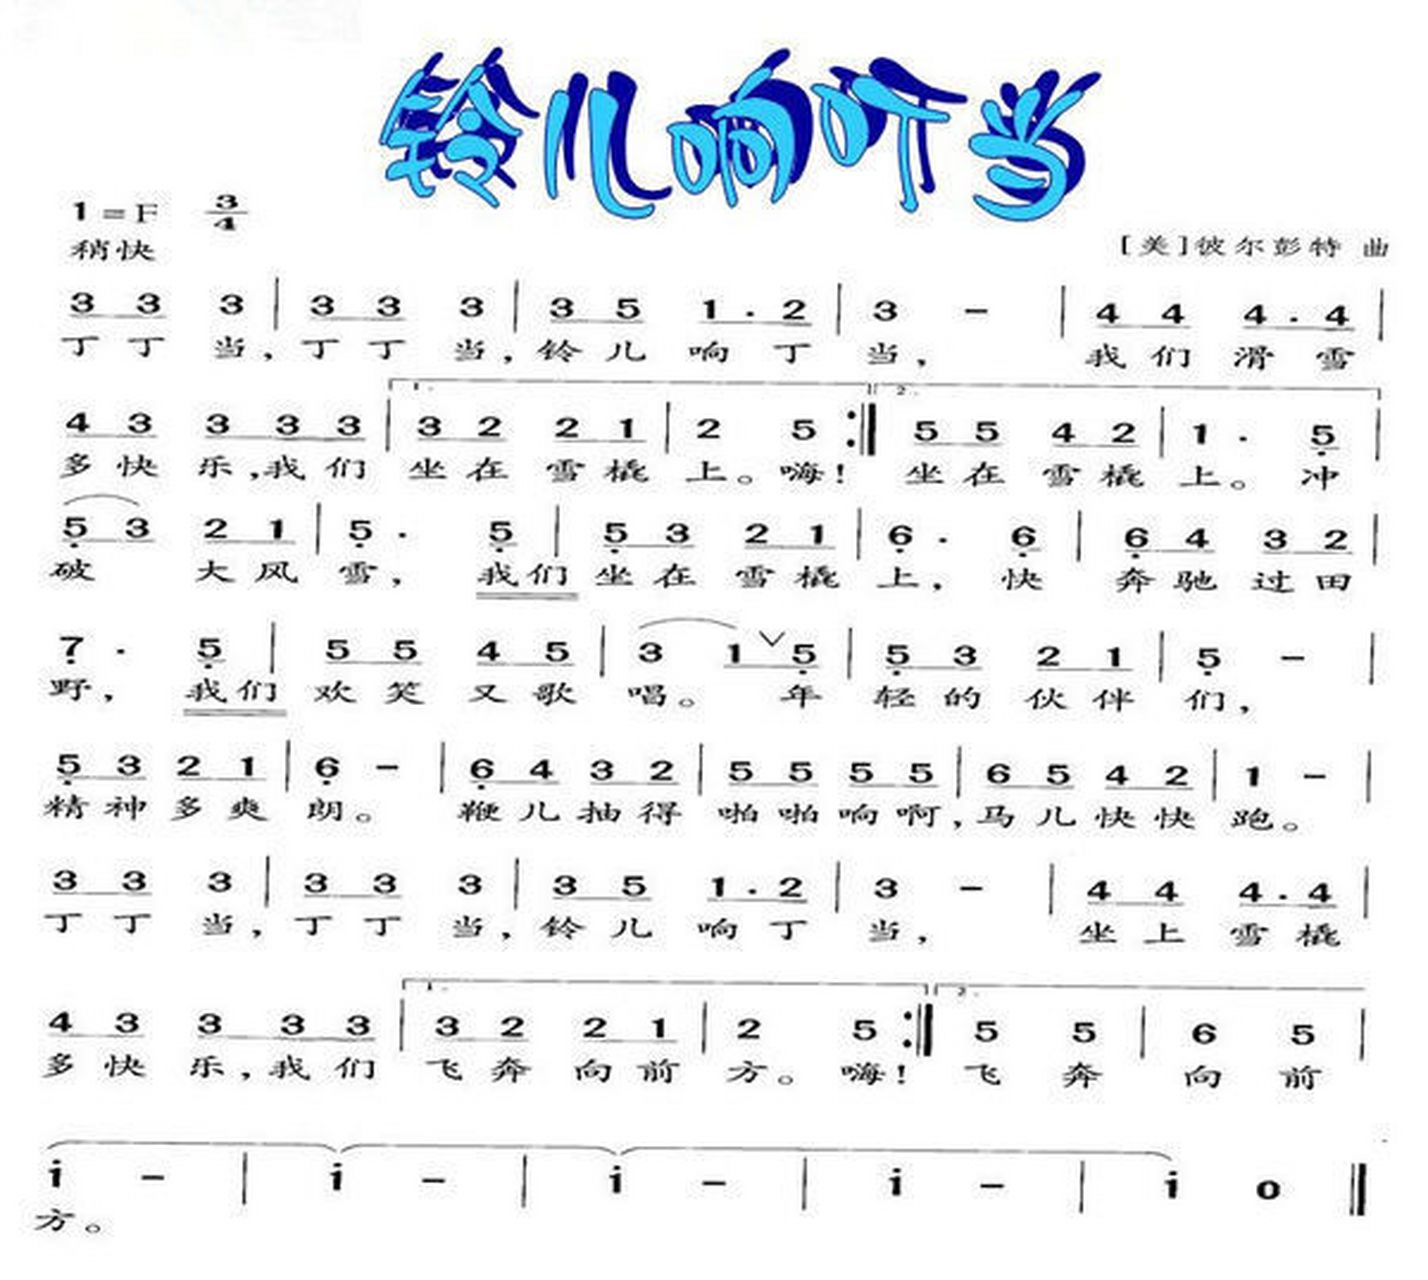 铃儿响叮当
1=F 3/4
稍快
[美]彼尔彭特 曲
3 3 3 | 3 3 3 | 3 5 1 . 2 | 3 - | 4 4 4 . 4 |
丁 丁 当,丁 丁 当,铃 儿 响 丁 当, 我 们 滑 雪
1. 2.
4 3 3 3 3 | 3 2 2 1 | 2 5 :‖ 5 5 4 2 | 1 . 5 |
多 快 乐,我 们 坐 在 雪 橇 上。嗨! 坐 在 雪 橇 上。 冲
5 3 2 1 | 5 . 5 | 5 3 2 1 | 6 . 6 | 6 4 3 2 |
破 大 风 雪, 我们 坐 在 雪 橇 上, 快 奔 驰 过 田
7 . 5 | 5 5 4 5 | 3 1 ∨ 5 | 5 3 2 1 | 5 - |
野, 我们 欢 笑 又 歌 唱。 年 轻 的 伙 伴 们,
5 3 2 1 | 6 - | 6 4 3 2 | 5 5 5 5 | 6 5 4 2 | 1 - |
精 神 多 爽 朗。 鞭 儿 抽 得 啪 啪 响 啊,马 儿 快 快 跑。
3 3 3 | 3 3 3 | 3 5 1 . 2 | 3 - | 4 4 4 . 4 |
丁 丁 当,丁 丁 当,铃 儿 响 丁 当, 坐 上 雪 橇
1. 2.
4 3 3 3 3 | 3 2 2 1 | 2 5 :‖ 5 5 | 6 5 |
多 快 乐,我 们 飞 奔 向 前 方。嗨! 飞 奔 向 前
i - | i - | i - | i - | i 0 ‖
方。